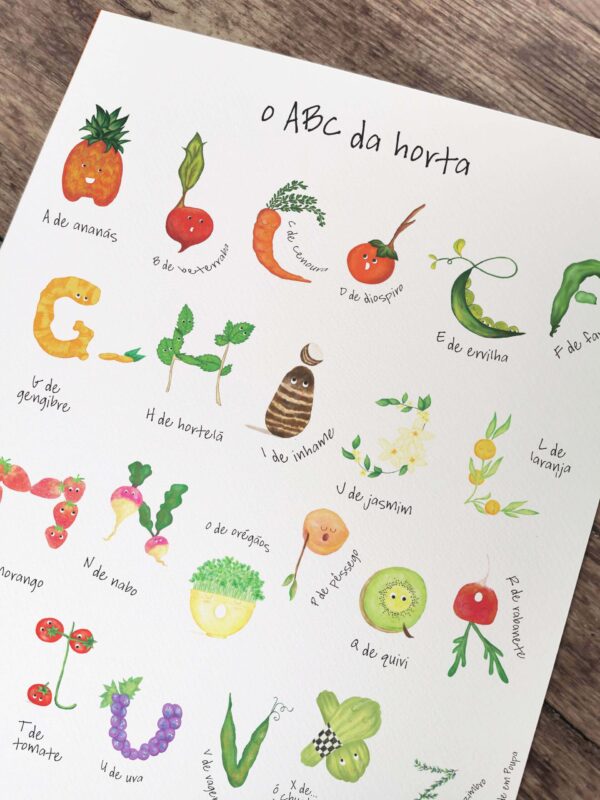 o ABC da horta
A de ananás
B de beterraba
C de cenoura
D de diospiro
E de ervilha
F de
G de
gengibre
H de hortelã
I de inhame
J de jasmim
L de
laranja
morango
N de nabo
O de orégãos
P de pêssego
Q de quivi
R de rabanete
T de
tomate
U de uva
V de
X de...